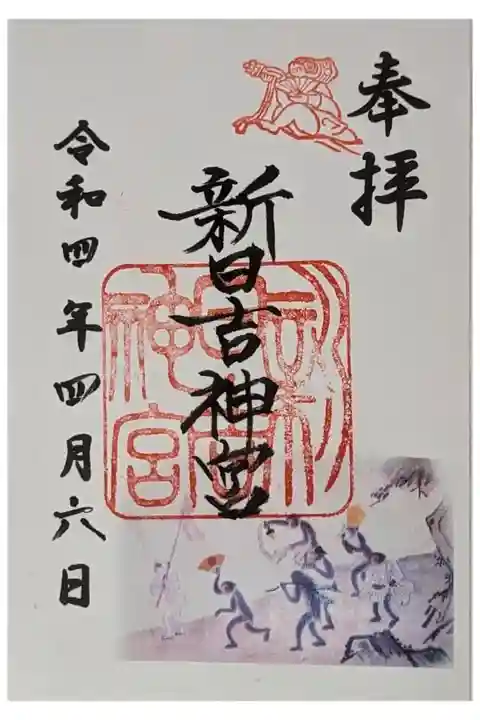 奉拝
新日吉神宮
令和四年四月六日